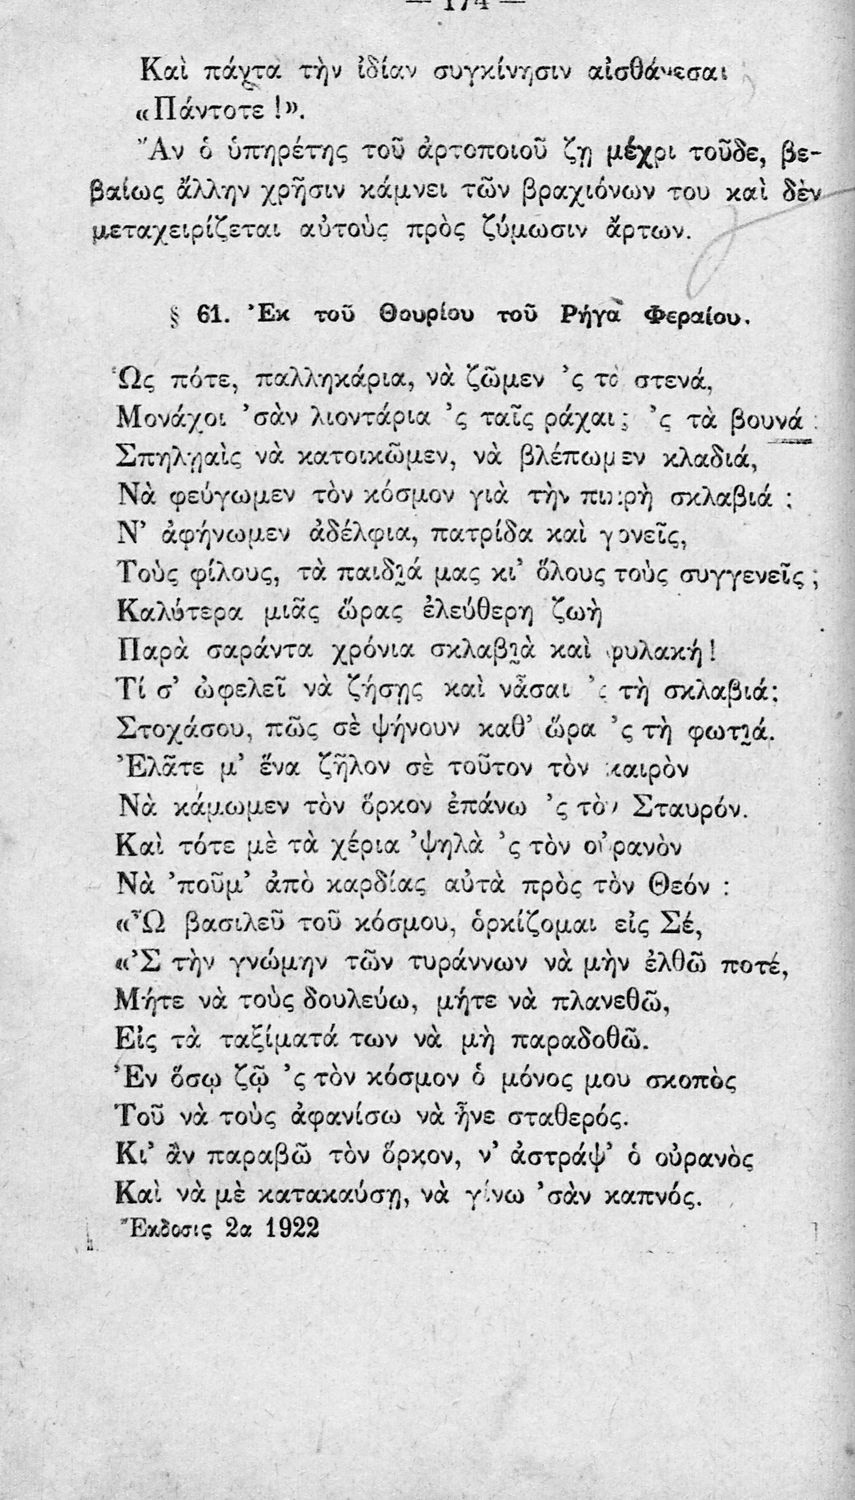 — 174 —
Καὶ πάντα τὴν ἰδίαν συγκίνησιν αἰσθάνεσαι
«Πάντοτε !».
Ἂν ὁ ὑπηρέτης τοῦ ἀρτοποιοῦ ζῃ μέχρι τοῦδε, βε-
βαίως ἄλλην χρῆσιν κάμνει τῶν βραχιόνων του καὶ δὲν
μεταχειρίζεται αὐτοὺς πρὸς ζύμωσιν ἄρτων.
§ 61. Ἐκ τοῦ Θουρίου τοῦ Ρήγα Φεραίου.
Ὡς πότε, παλληκάρια, νὰ ζῶμεν ’ς τὰ στενά,
Μονάχοι ’σὰν λιοντάρια ’ς ταῖς ράχαις ’ς τὰ βουνά :
Σπηλῃαὶς νὰ κατοικῶμεν, νὰ βλέπωμεν κλαδιά,
Νὰ φεύγωμεν τὸν κόσμον γιὰ τὴν πικρὴ σκλαβιά ;
Ν’ ἀφήνωμεν ἀδέλφια, πατρίδα καὶ γονεῖς,
Τοὺς φίλους, τὰ παιδι̮ά μας κι’ ὅλους τοὺς συγγενεῖς ;
Καλύτερα μιᾶς ὥρας ἐλεύθερη ζωὴ
Παρὰ σαράντα χρόνια σκλαβι̮ὰ καὶ φυλακή!
Τί σ’ ὠφελεῖ νὰ ζήσῃς καὶ νἆσαι ’ς τὴ σκλαβιά;
Στοχάσου, πῶς σὲ ψήνουν καθ’ ὥρα ’ς τὴ φωτι̮ά.
Ἐλᾶτε μ’ ἕνα ζῆλον σὲ τοῦτον τὸν καιρὸν
Νὰ κάμωμεν τὸν ὅρκον ἐπάνω ’ς τὸν Σταυρόν.
Καὶ τότε μὲ τὰ χέρια ’ψηλὰ ’ς τὸν οὐρανὸν
Νὰ ’ποῦμ’ ἀπὸ καρδίας αὐτὰ πρὸς τὸν Θεόν :
«Ὦ βασιλεῦ τοῦ κόσμου, ὁρκίζομαι εἰς Σέ,
«’Σ τὴν γνώμην τῶν τυράννων νὰ μὴν ἐλθῶ ποτέ,
Μήτε νὰ τοὺς δουλεύω, μήτε νὰ πλανεθῶ,
Εἰς τὰ ταξίματά των νὰ μὴ παραδοθῶ.
Ἐν ὅσῳ ζῷ ’ς τὸν κόσμον ὁ μόνος μου σκοπὸς
Τοῦ νὰ τοὺς ἀφανίσω νὰ ἦνε σταθερός.
Κι’ ἂν παραβῶ τὸν ὅρκον, ν’ ἀστράψ’ ὁ οὐρανὸς
Καὶ νὰ μὲ κατακαύσῃ, νὰ γίνω ’σὰν καπνός.
Ἔκδοσις 2α 1922